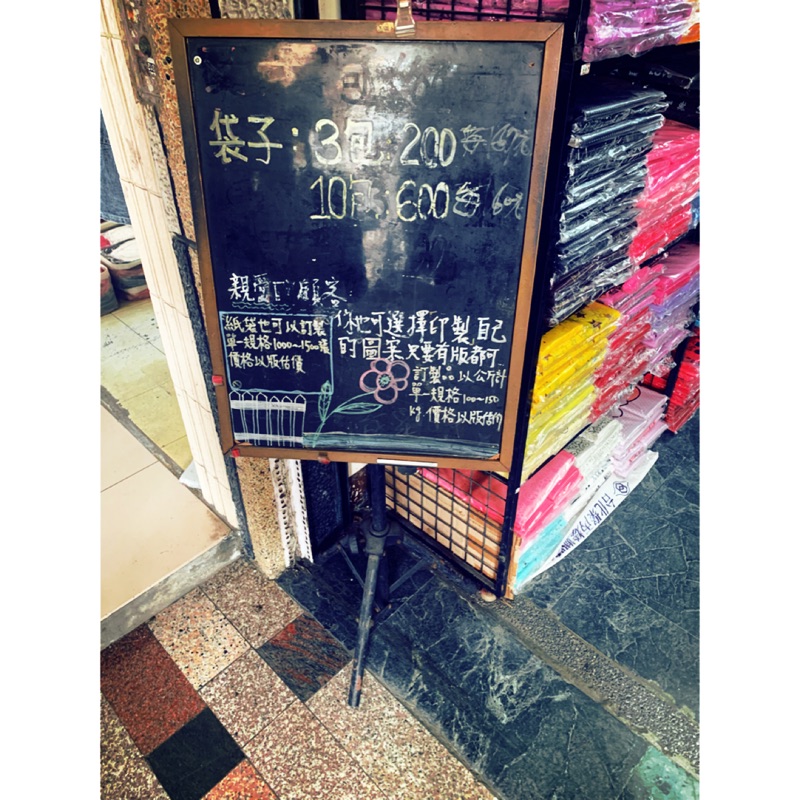 袋子:3包 200 每 67元
10包 600 每 60元
親愛的顧客
紙袋也可以訂製
單一規格1000~1500張
價格以版估價
你也可選擇印製自己
的圖案 只要有版都可
訂製。以公斤計
單一規格100~150
kg 價格以版估價